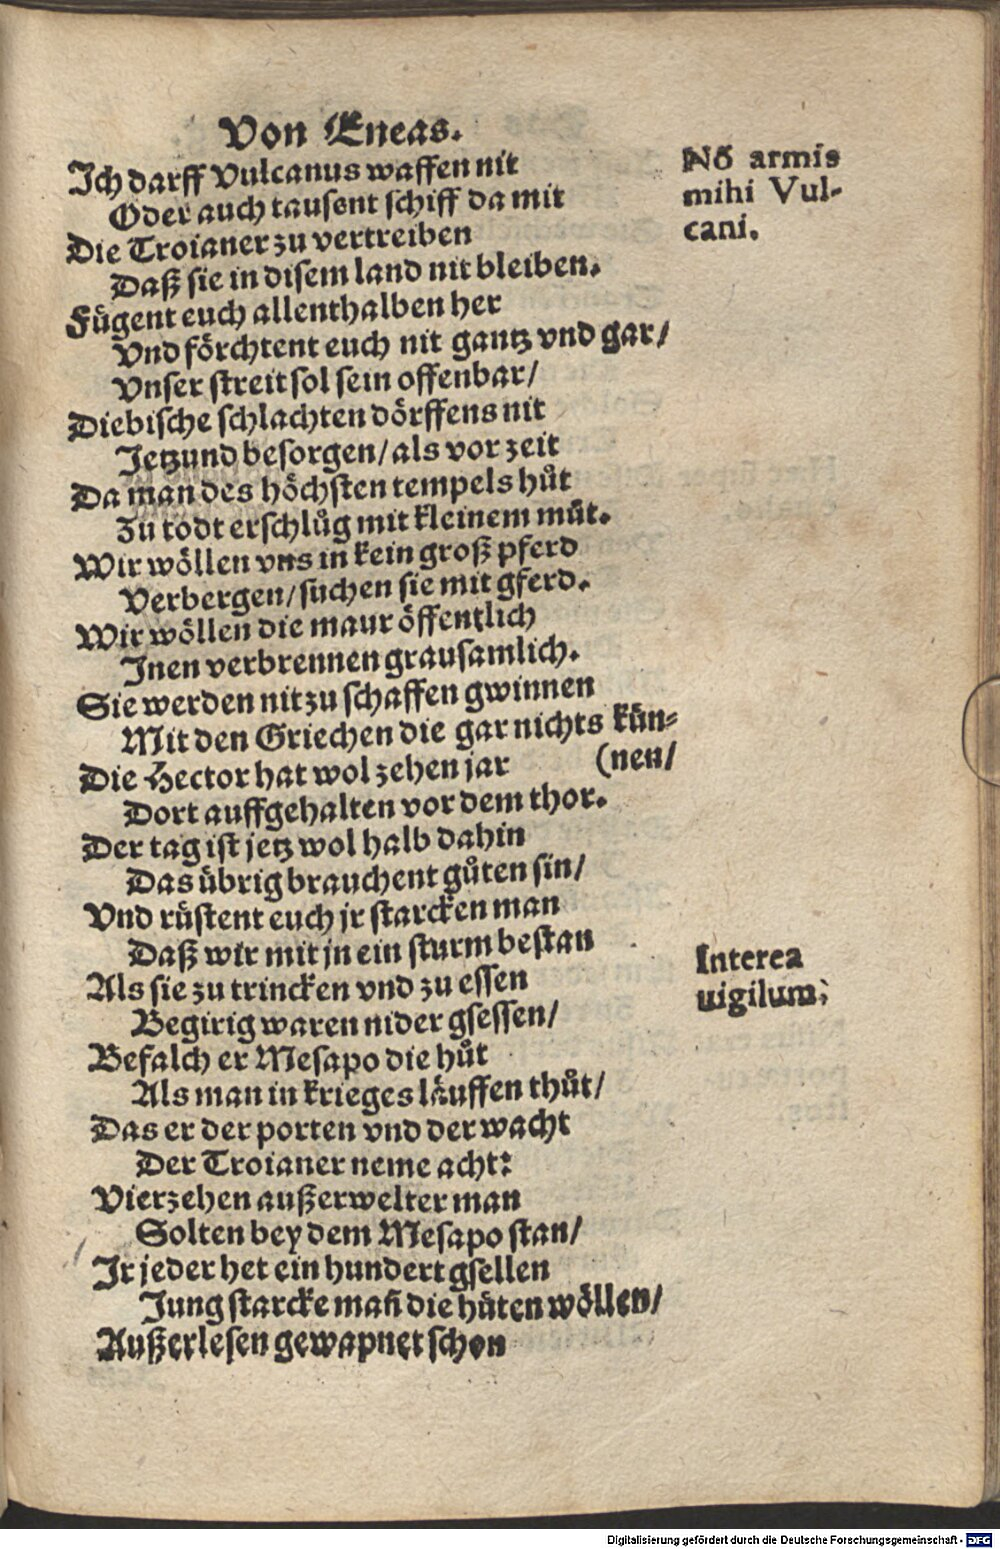 Von Eneas.
Ich darff Vulcanus waffen nit
Oder auch tausent schiff da mit
Die Troianer zu vertreiben
Daß sie in disem land nit bleiben.
Fügent euch allenthalben her
Vnd förchtent euch nit gantz vnd gar/
Vnser streit sol sein offenbar/
Diebische schlachten dörffens nit
Jetzund besorgen/ als vor zeit
Da man des höchsten tempels hůt
Zu todt erschlůg mit kleinem můt.
Wir wöllen vns in kein groß pferd
Verbergen/ suchen sie mit gferd.
Wir wöllen die maur öffentlich
Inen verbrennen grausamlich.
Sie werden nit zu schaffen gwinnen
Mit den Griechen die gar nichts kün-
Die Hector hat wol zehen jar (nen/
Dort auffgehalten vor dem thor.
Der tag ist jetz wol halb dahin
Das übrig brauchent gůten sin/
Vnd rüstent euch jr starcken man
Daß wir mit jn ein sturm bestan
Als sie zu trincken vnd zu essen
Begirig waren nider gsessen/
Befalch er Mesapo die hůt
Als man in krieges läuffen thůt/
Das er der porten vnd der wacht
Der Troianer neme acht:
Vierzehen außerwelter man
Solten bey dem Mesapo stan/
Ir jeder het ein hundert gsellen
Jung starcke mañ die hüten wöllen/
Außerlesen gewapnet schon
Nõ armis
mihi Vul-
cani.
Interea
uigilum;
Digitalisierung gefördert durch die Deutsche Forschungsgemeinschaft - DFG